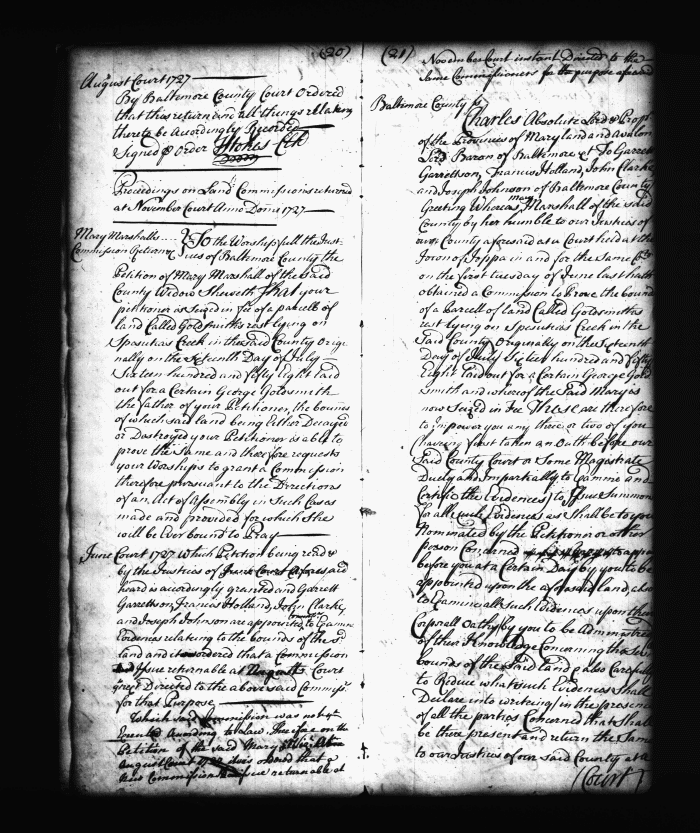 (20)
August Court 1727
By Baltemore County Court Ordered
that this return and all things relateing
thereto be accordingly Recorded
Signed p Order JStokes Clk
Proceedings on Land Commissions returned
at November Court Anno Domi 1727
Mary Marshalls
Commission & Returne
To the Worshipfull the Just
ices of Baltemore County the
Petition of Mary Marshall of the said
County Widow Sheweth That your
petitioner is Seized in fee of a parcell of
land Called Goldsmiths rest lying on
Spesutias Creek in the said County Origi
nally on the Seventeenth Day of July
Sixteen hundred and fifty Eight laid
out for a Certain George Goldsmith
the father of your Petitioner, the bounds
of which said land being Either Decayed
or Destroyed your Petitioner is able to
prove the Same and therefore requests
your Worships to grant a Commission
therefore pursuant to the Directions
of an Act of Assembly in Such Cases
made and provided for which She
will be Ever bound to Pray
June Court 1727 which Petition being read &
by the Justices of June Court aforesaid
heard is accordingly granted and Garrett
Garrettson, Francis Holland, John Clarke,
and Joseph Johnson are appointed to Examine
Evidences relating to the bounds of the sd
land and it is ordered that a Commission
Issue returnable at August Court
next Directed to the above said Commissrs
for that Purpose
Which said Commission was not
Executed according to Law Therefore on the
Petition of the said Mary
August Court 1727 it is ordered that a
New Commission issue returnable at
(21)
November Court instant Directed to the
Same Commissioners for the purpose aforesaid
Baltimore County ss
Charles Absolute Lord & Propr
of the Provinces of Maryland and Avalon
Lord Baron of Baltemore &c To Garrett
Garrettson, Francis Holland, John Clarke
and Joseph Johnson of Baltemore County
Greeting Whereas Mary Marshall of the said
County by her humble to our Justices of
our County aforesaid at a Court held at the
Town of Joppa in and for the same Coty
on the first tuesday of June last hath
obtained a Commission to Prove the bounds
of a Parcell of land Called Goldsmiths
rest lying on Spesutias Creek in the
Said County Originally on the Seventeenth
Day of July Sixteen hundred and fifty
Eight laid out for a Certain George Gold
smith and whereof the said Mary is
now Seized in fee These are therefore
to impower you any three or two of you
(haveing first taken an Oath before our
Said County Court or Some Magistrate
Duely and Impartially to Examine and
Certifie the Evidences) to Issue Summons
for all such Evidences as Shall be to you
Nominated by the Petitioner or other
person Concerned to appear
before you at a Certain Day by you to be
appointed upon the aforesaid land, also
to Examine all such Evidences upon their
Corporall Oaths by you to be Administred
of their Knowledge Concerning the
bounds of the said land & also Carefully
to Reduce what such Evidences Shall
Declare into writeing in the presence
of all the parties Concerned that Shall
be there present and return the Same
to our Justices of our said County at a
(Court)